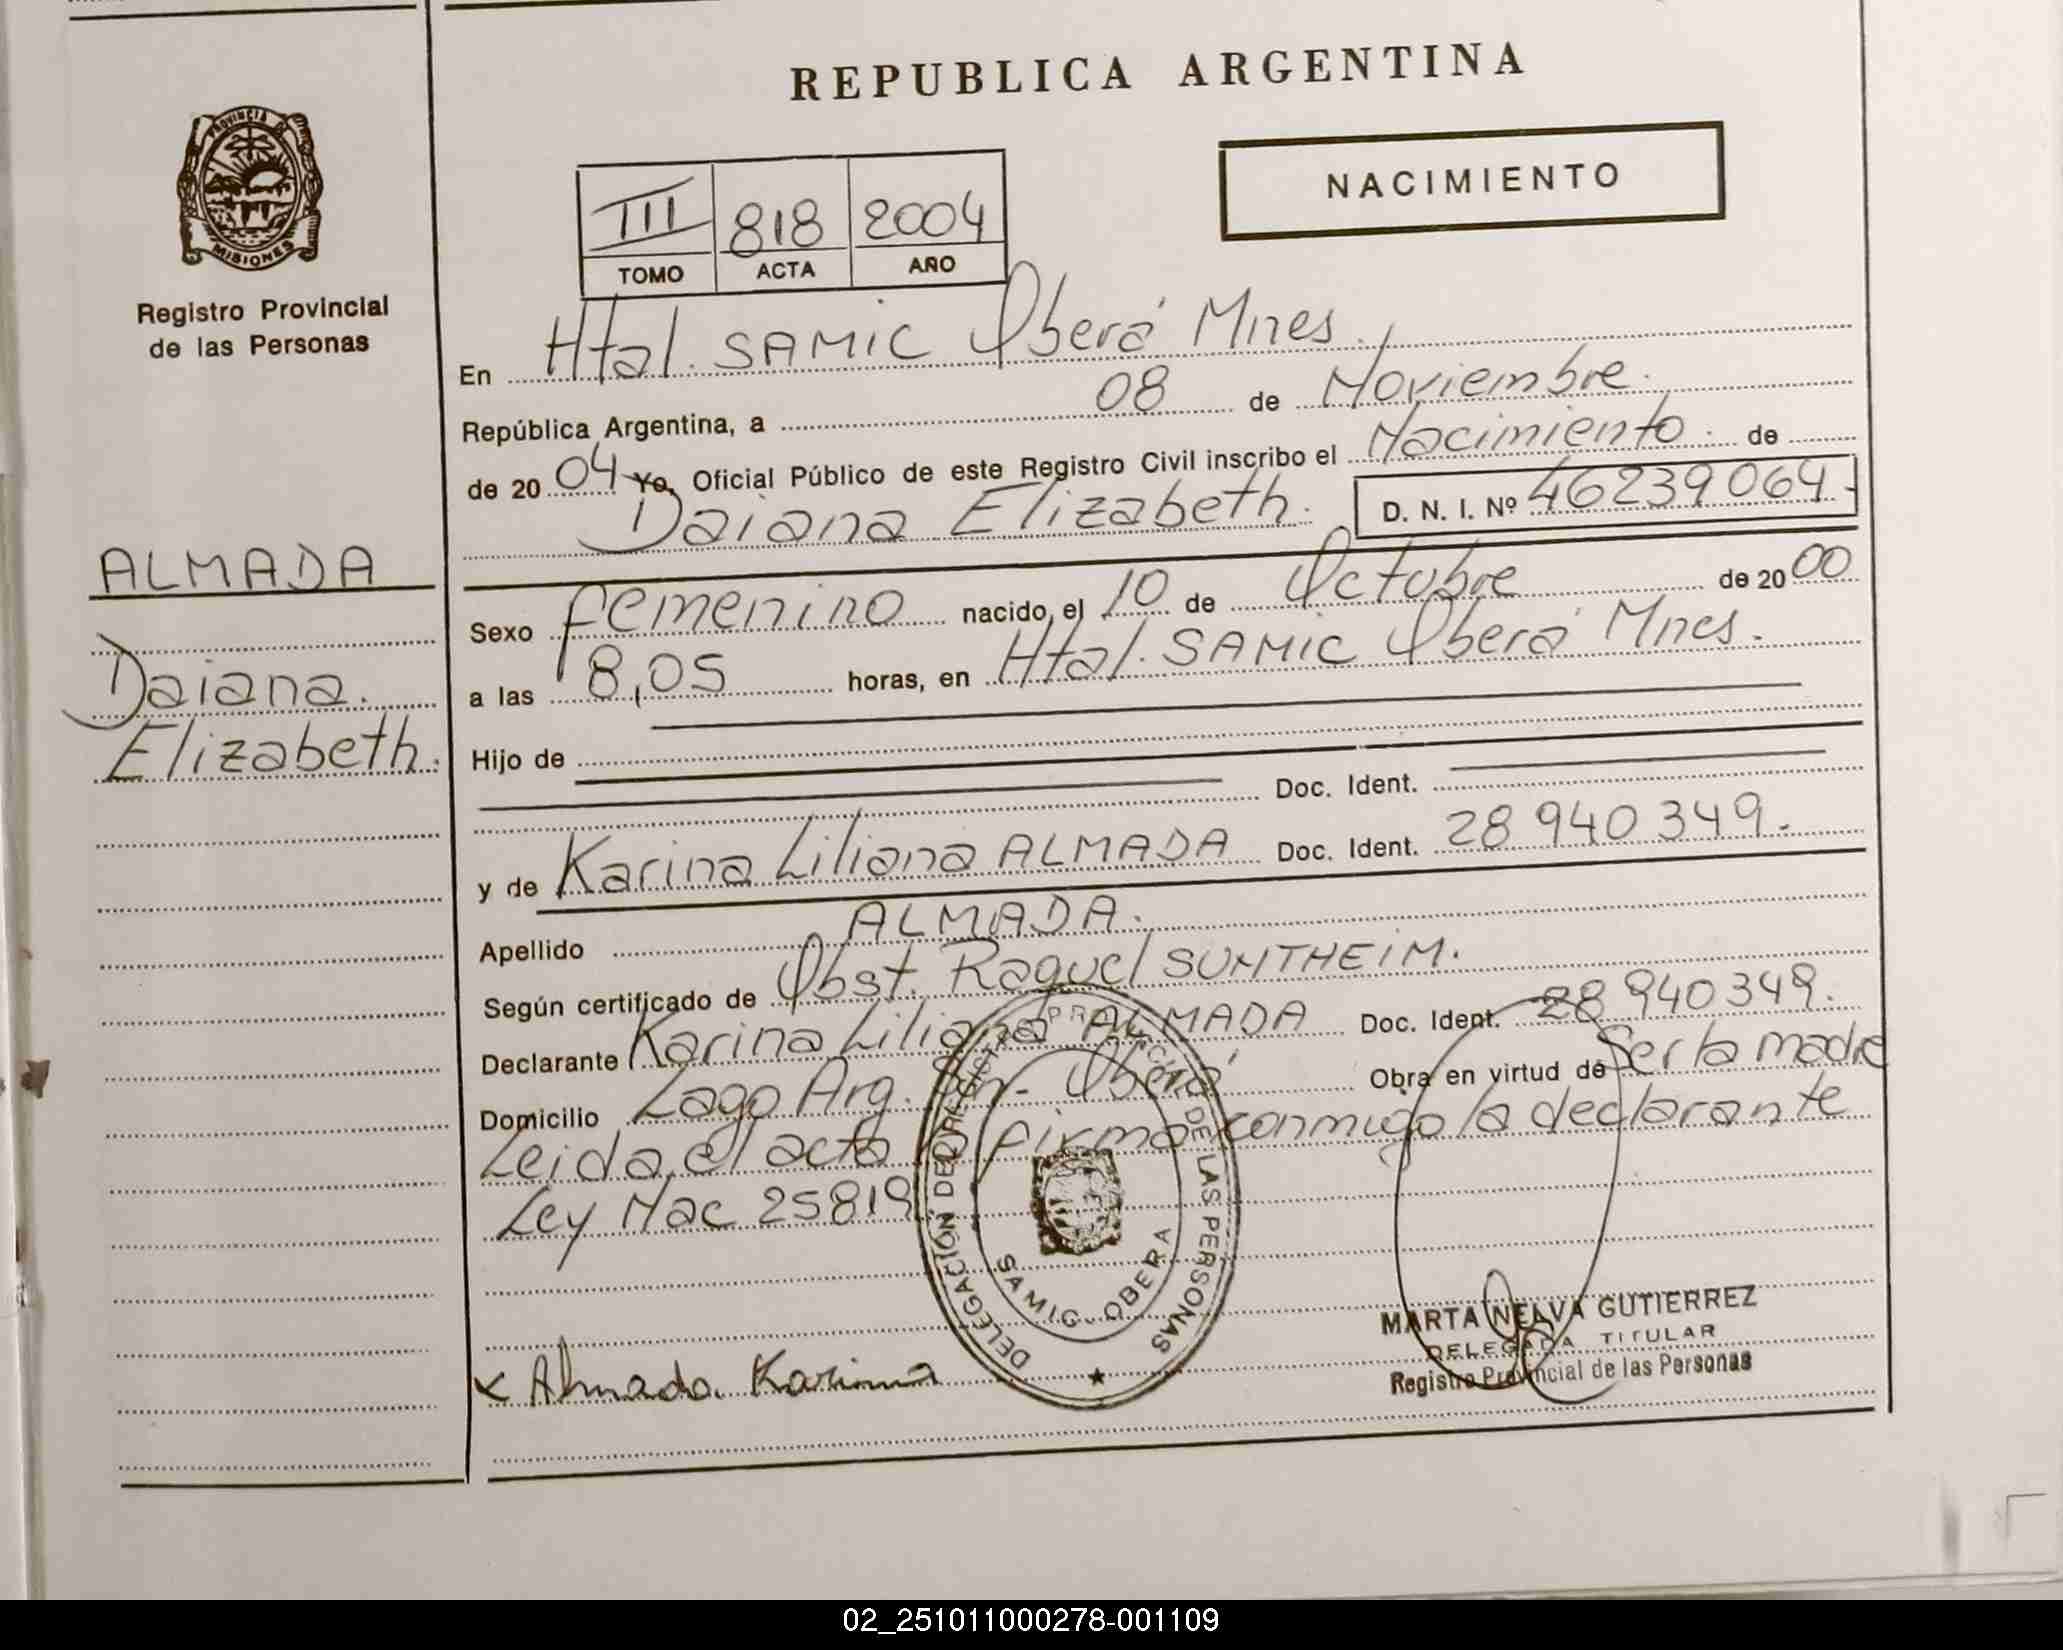 REPUBLICA ARGENTINA
NACIMIENTO
III 818 2004
TOMO ACTA AÑO
PROVINCIA DE
MISIONES
Registro Provincial
de las Personas
ALMADA
Daiana.
Elizabeth.
En Htal. SAMIC Oberá Mnes.
República Argentina, a 08 de Noviembre.
de 20 04 Yo, Oficial Público de este Registro Civil inscribo el Nacimiento. de
Daiana Elizabeth. D. N. I. Nº 46239064.
Sexo femenino nacido, el 10 de Octubre de 20 00
a las 8,05 horas, en Htal. SAMIC Oberá Mnes.
Hijo de
Doc. Ident.
y de Karina Liliana ALMADA Doc. Ident. 28 940 349.
Apellido ALMADA.
Según certificado de Obst. Raquel SUNTHEIM.
Declarante Karina Liliana ALMADA Doc. Ident. 28 940 349.
Domicilio Lago Arg. Oberá Obra en virtud de Ser la madre
Leida el acta la firma conmigo la declarante
Ley Nac 25819
DELEGACIÓN DEL REGISTRO PROVINCIAL DE LAS PERSONAS
SAMIC - OBERA
MARTA NELVA GUTIERREZ
DELEGADA TITULAR
Registro Provincial de las Personas
x Almada Karina
02_251011000278-001109